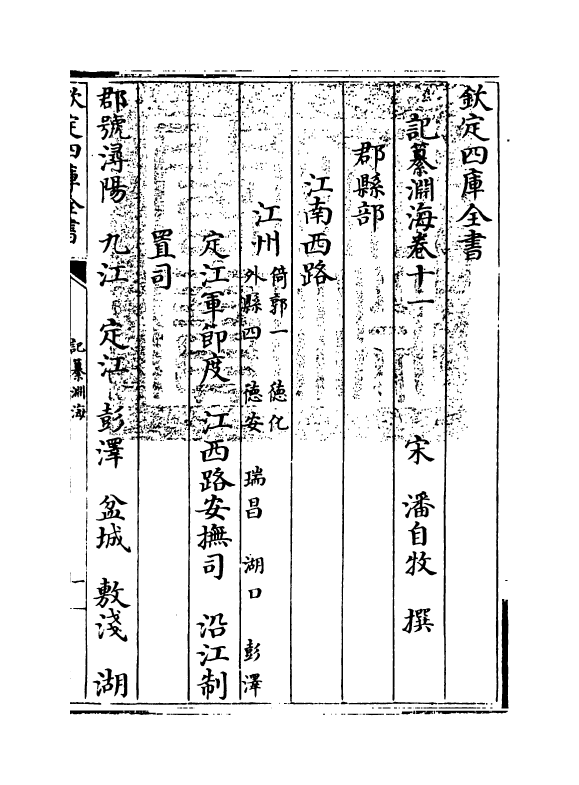 欽定四庫全書
記纂淵海卷十一
宋 潘自牧 撰
郡縣部
江南西路
江州
倚郭一 德化
外縣四 德安 瑞昌 湖口 彭澤
定江軍節度 江西路安撫司 沿江制
置司
郡號潯陽 九江 定江 彭澤 盆城 敷淺 湖
欽定四庫全書
記纂淵海
一